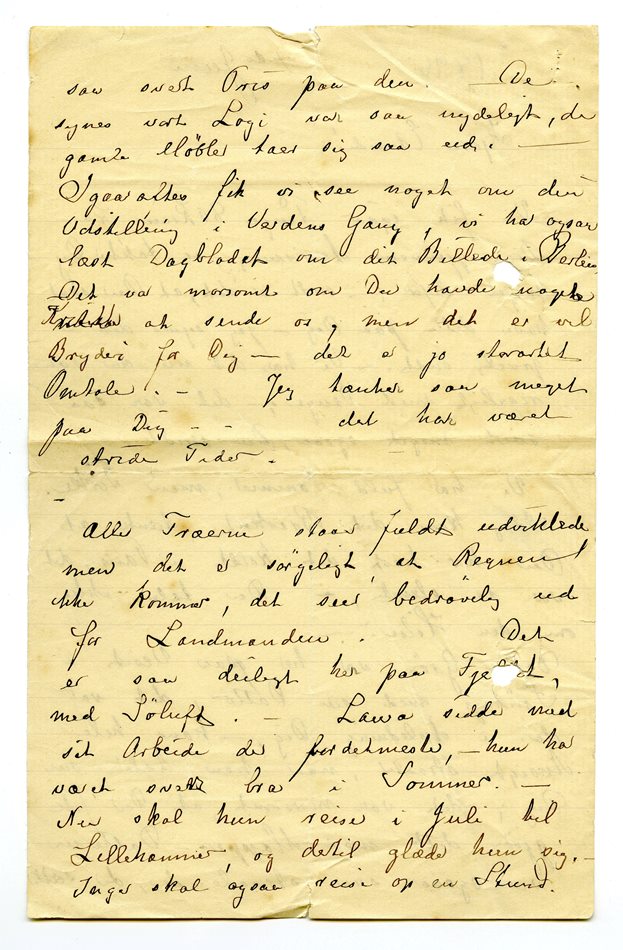 saa svært Pris paa den. — De
synes vort Logi var saa nydeligt, de
gamle Møbler taer sig saa ud. —
Igaaraftes fik vi see noget om din
Udstilling i Verdens Gang, vi har ogsaa
læst Dagbladet om dit Billede i Berlin
Det var morsomt om Du havde noget
Kritikk at sende os, men det er vel
Bryderi for Dig — det er jo storartet
Omtale. — Jeg tænker saa meget
paa Dig — — det har været
stride Tider. —
—
Alle Træerne staar fuldt udviklede
men det er sørgeligt, at Regnen
ikke kommer, det seer bedrøvelig ud
for Landmanden. . Det
er saa deiligt her paa Fjeldet,
med Søluft. — Laura sidder med
sit Arbeide der fordetmeste, — hun har
været svært bra i Sommer. —
Nu skal hun reise i Juli til
Lillehammer, og dertil glæder hun sig. —
Inger skal ogsaa reise op en Stund.